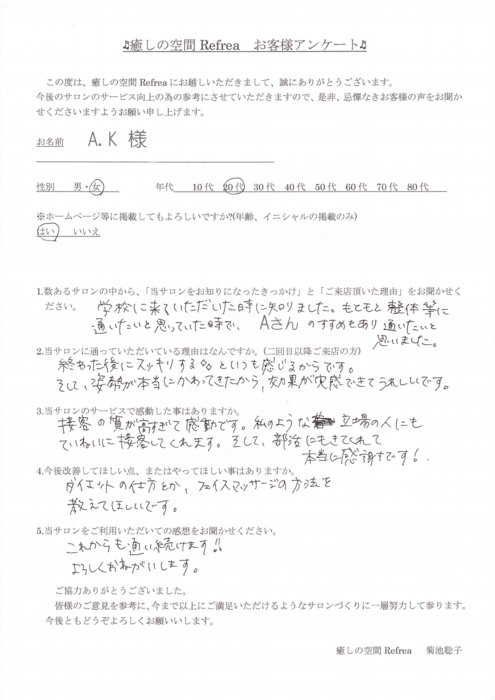 ♫癒しの空間 Refrea　お客様アンケート♫
この度は、癒しの空間 Refrea にお越しいただきまして、誠にありがとうございます。
今後のサロンのサービス向上の為の参考にさせていただきますので、是非、忌憚なきお客様の声をお聞か
せくださいますようお願い申し上げます。
お名前　A.K 様
性別　男・女　年代　10代　20代　30代　40代　50代　60代　70代　80代
※ホームページ等に掲載してもよろしいですか?(年齢、イニシャルの掲載のみ)
はい　いいえ
1.数あるサロンの中から、「当サロンをお知りになったきっかけ」と「ご来店頂いた理由」をお聞かせく
ださい。　学校に来ていただいた時に知りました。もともと整体等に
通いたいと思っていた時で、Aさんのすすめもあり通いたいと
思いました。
2.当サロンに通っていただいている理由はなんですか。(二回目以降ご来店の方)
終わった後にスッキリする。といつも感じるからです。
そして、姿勢が本当にかわってきたから、効果が実感できてうれしいです。
3.当サロンのサービスで感動した事はありますか。
接客の質が高すぎて感動です。私のような立場の人にも
ていねいに接客してくれます。そして、部活にもきてくれて
本当に感謝です!
4.今後改善してほしい点、またはやってほしい事はありますか。
ダイエットの仕方とか、フェイスマッサージの方法を
教えてほしいです。
5.当サロンをご利用いただいての感想をお聞かせください。
これからも通い続けます!!
よろしくおねがいします。
ご協力ありがとうございました。
皆様のご意見を参考に、今まで以上にご満足いただけるようなサロンづくりに一層努力して参ります。
今後ともどうぞよろしくお願いいします。
癒しの空間 Refrea　菊池聡子